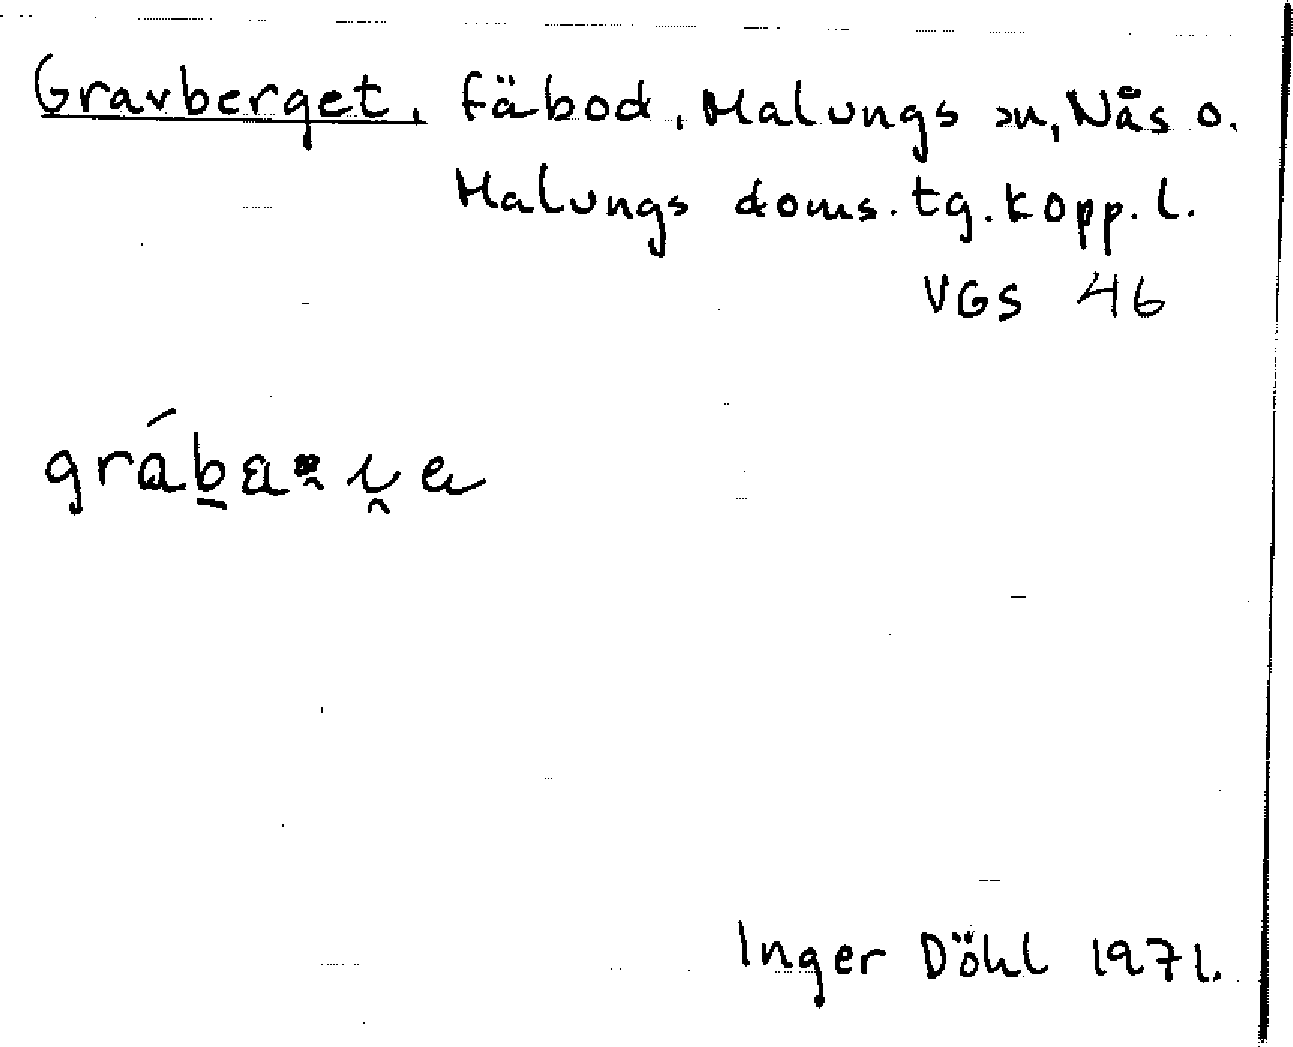 Gravberget, fäbod, Malungs sn, Nås o.
Malungs doms. tg. Kopp. l.
VGS 46
Inger Döhl 1971.